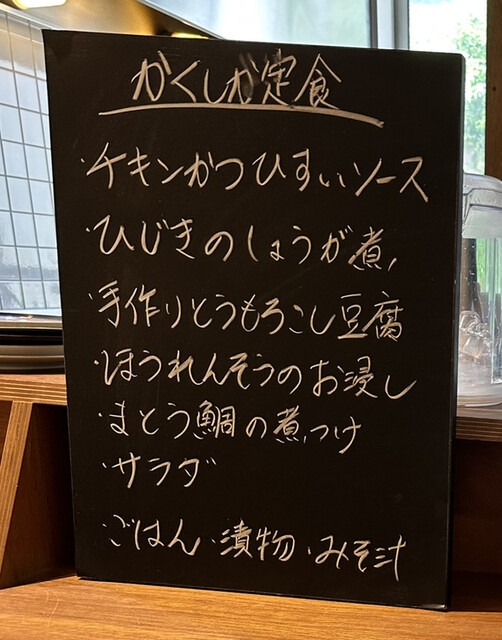 かくしか定食
・チキンかつひすいソース
・ひじきのしょうが煮
・手作りとうもろこし豆腐
・ほうれんそうのお浸し
・まとう鯛の煮つけ
・サラダ
・ごはん・漬物・みそ汁